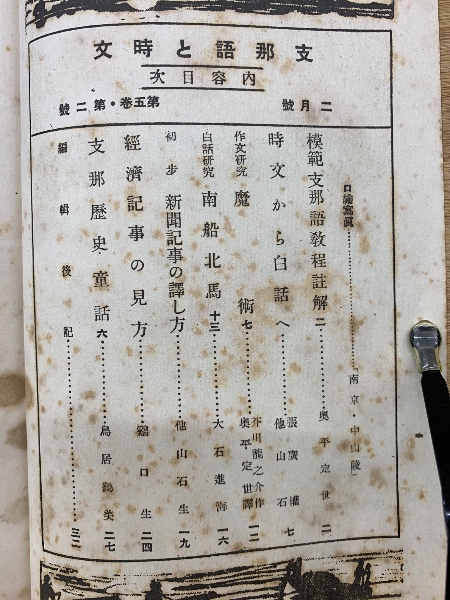 支那語と時文
內容目次
二月號 第五卷・第二號
口繪寫眞…………………「南京 中山陵」
模範支那語敎程註解 二………奧平定世 二
時文から白話へ………張廣瀛 他山石 七
作文研究 魔術 七………芥川龍之介作 奧平定世譯 一二
白話硏究 南船北馬 十三………大石進海 一六
初步 新聞記事の譯し方………他山石生 一九
經濟記事の見方………鷄口生 二四
支那歷史童話 六………鳥居鶴美 二七
編輯後記………三二